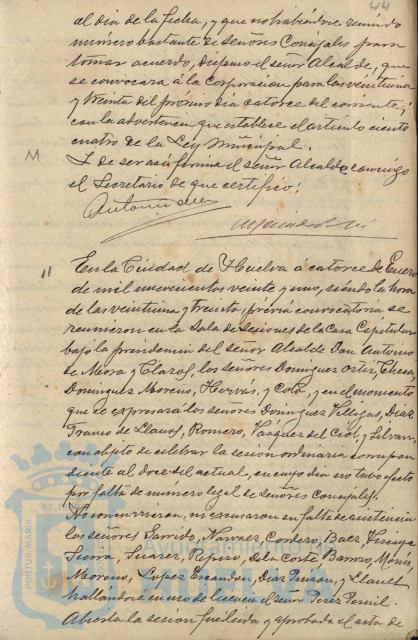 44
al dia de la fecha, y que no habiéndose reunido
número bastante de señores Concejales para
tomar acuerdo, dispuso el señor Alcalde, que
se convocara á la Corporación para las veintiuna
y treinta del próximo dia catorce del corriente;
con la advertencia que establece el artículo ciento
cuatro de la Ley Municipal.
Y de ser así firma el señor Alcalde conmigo
el Secretario de que certifico:
M
Antonio de
11
En la Ciudad de Huelva á catorce de Enero
de mil novecientos veinte y uno, siendo la hora
de las veintiuna y treinta, prévia convocatoria se
reunieron en la Sala de Sesiones de la Casa Capitular
bajo la presidencia del señor Alcalde Don Antonio
de Mora y Claros, los señores Dominguez Ortiz, Checa
Dominguez Moreno, Hervás, y Coto, y en el momento
que se expresará los señores Dominguez Villegas, Diaz
Franco de Llanos, Romero, Vazquez del Cid, y Silvan,
con objeto de celebrar la sesión ordinaria correspon
diente al doce del actual, en cuyo dia no tuvo efecto
por falta de número legal de señores concejales.
No concurrieron, ni excusaron su falta de asistencia
los señores Garrido, Narvaez, Cordero, Baez,
Serra, Suarez, de la Corte, Barroso,
Moreno, Lopez Diaz Pinzon, y
hallándose en uso de licencia el señor Perez
Abierta la sesión fué leida y aprobada el acta de
PORTUS MARIS